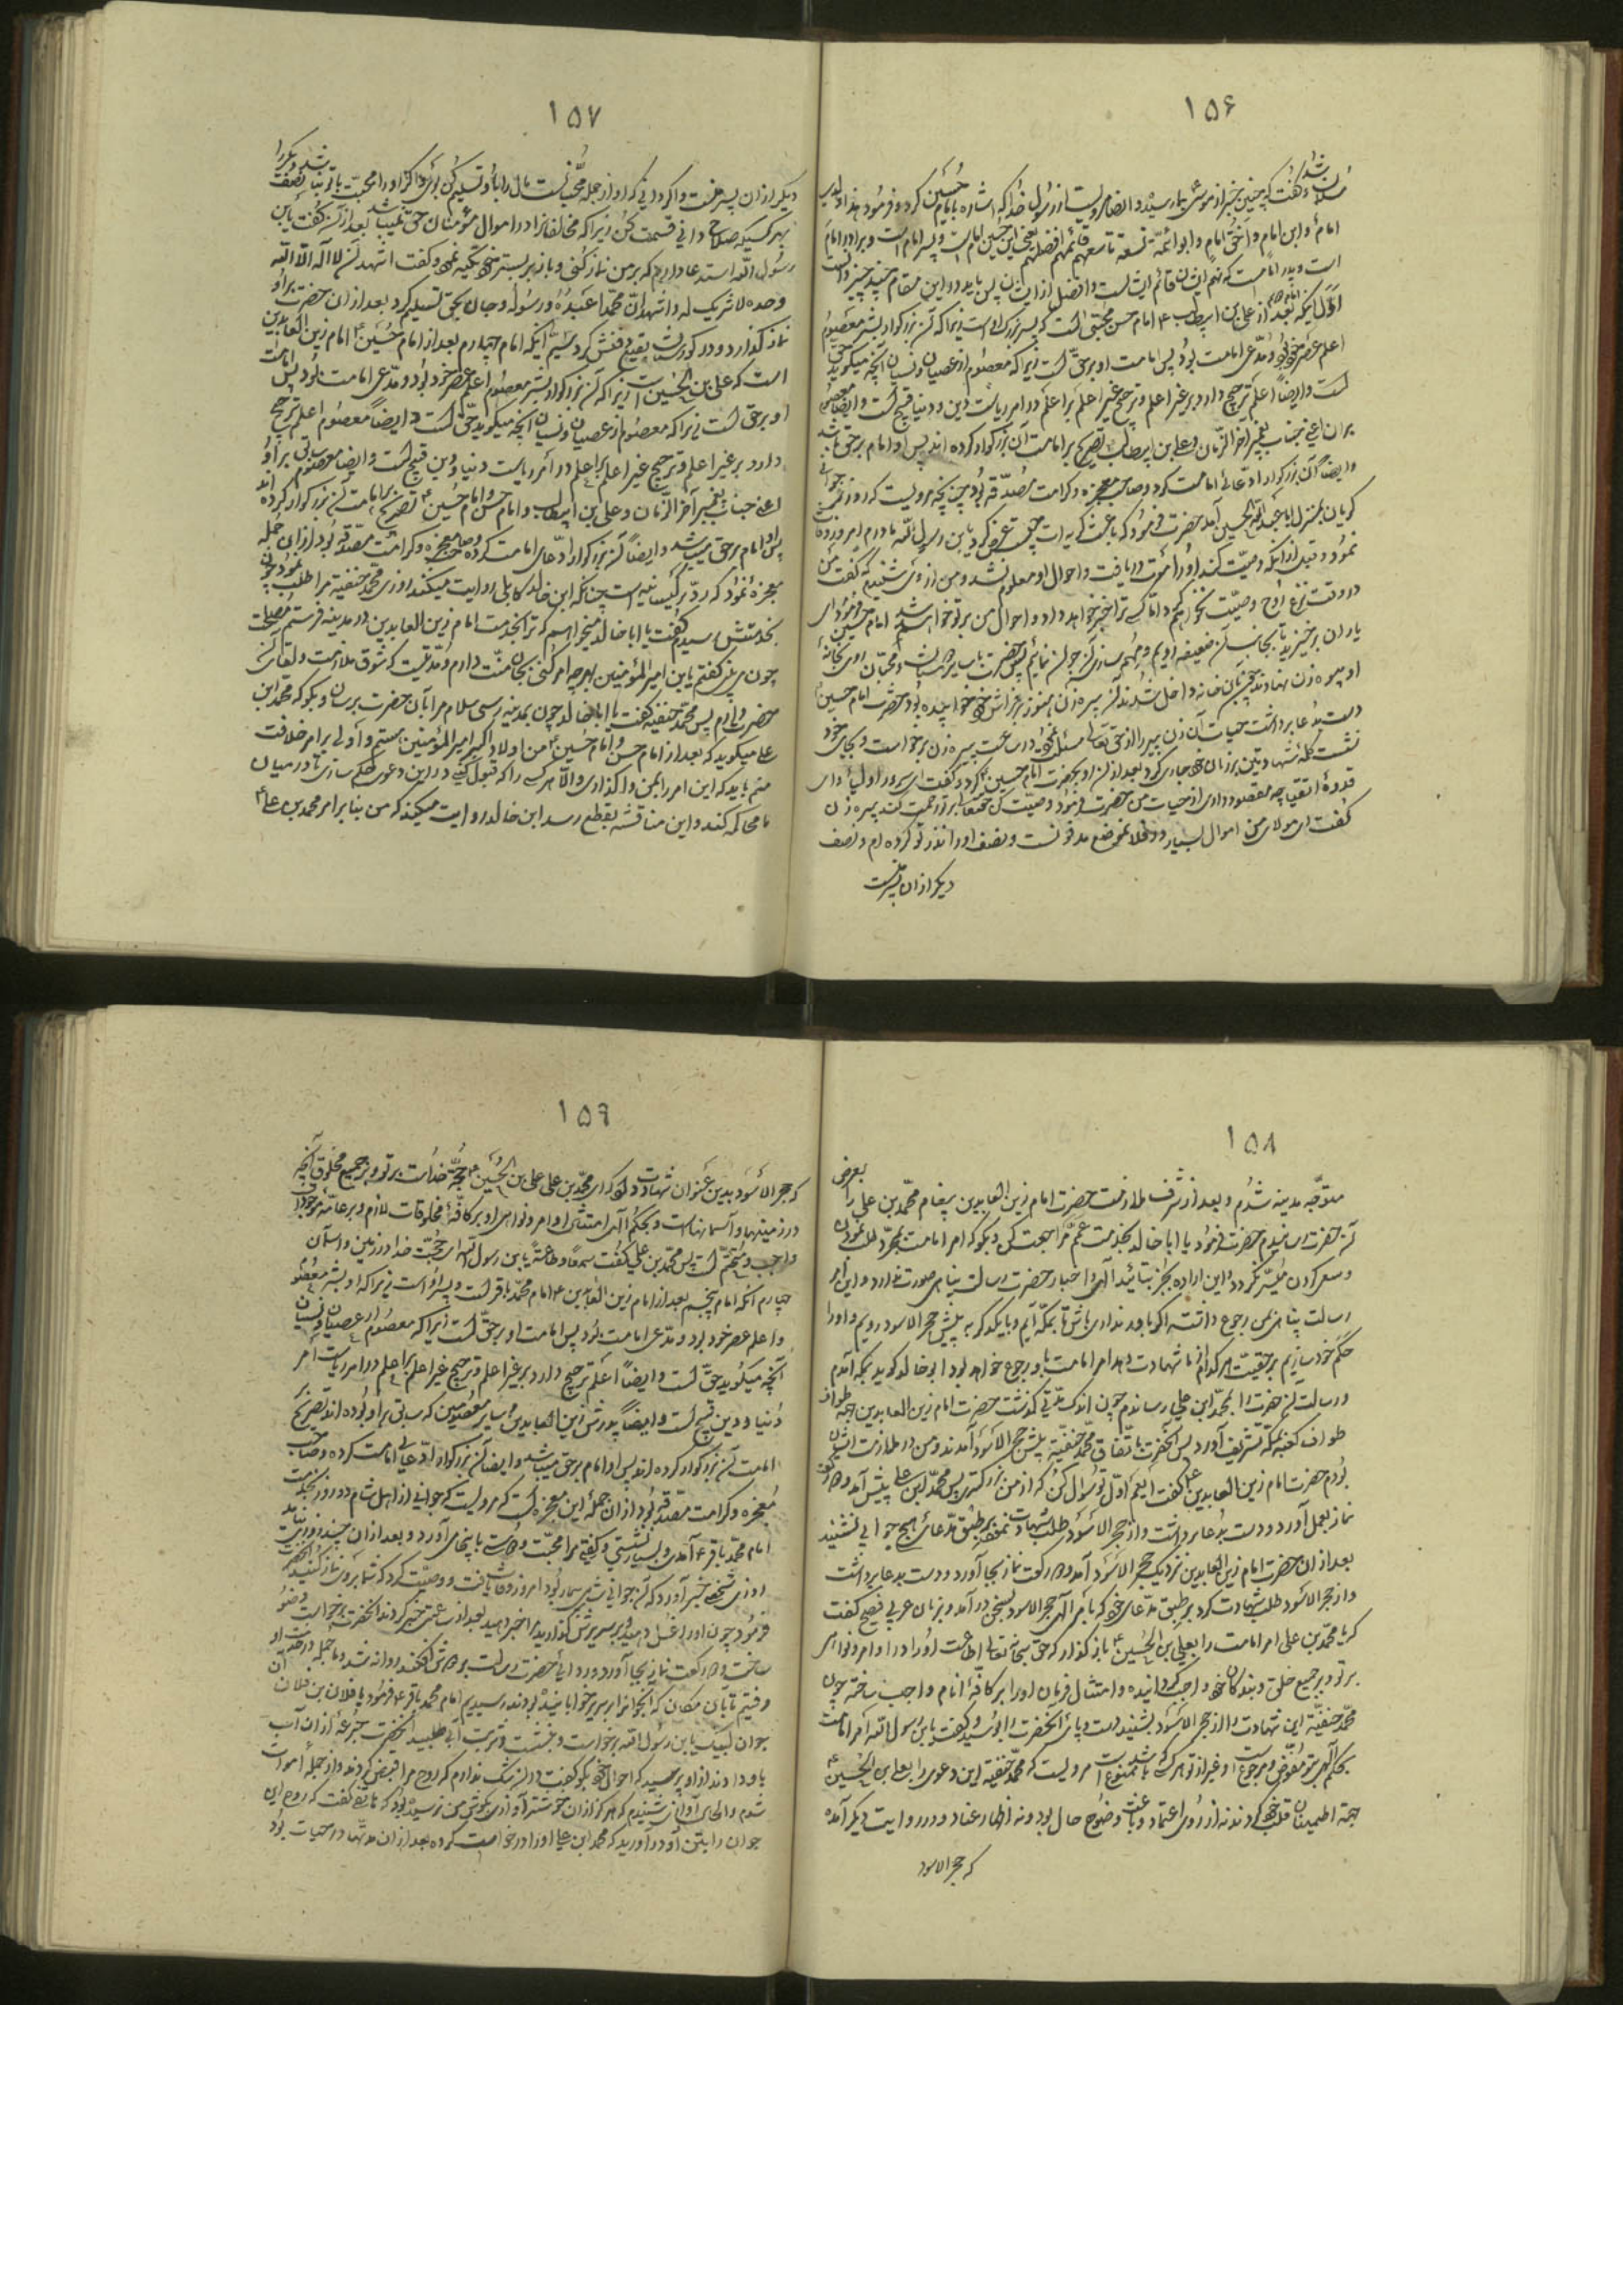 ۱۵۶
امام و ابن امام و اخی امام و ابو ائمّة تسعة تاسعهم قائمهم افضلهم یعنی این حسین امام است و پسر امام است و برادر امام
است و پدر امامست که نهم ایشان قائم ایشانست و افضل از ایشان پس باید در این مقام چند چیز دانست
اوّل اینکه امام بعد از علی بن ابیطالب امام حسن مجتبی است که پسر بزرگ او است زیرا که آن بزرگوار بشر معصوم
اعلم عصر خود بود و مدّعی امامت بود پس امامت او بر حقّ است زیرا که معصوم از عصیان و نسیان آنچه میگوید حق
است و ایضاً اعلم ترجیح دارد بر غیر اعلم و ترجیح غیر اعلم بر اعلم در امر ریاست دین و دنیا قبیح است و ایضاً معصوم
بر آن اعنی جناب پیغمبر آخر الزّمان و علی بن ابیطالب تصریح بر امامت آن بزرگوار کرده‌اند پس او امام بر حق باشد
و ایضاً آن بزرگوار ادّعای امامت کرد و صاحب معجزه و کرامت مصدّقه بود چنانچه مرویست که روزی جوانی
گریان بمنزل ابا عبد الله الحسین آمد حضرت فرمود که باعث گریه‌ات چیست عرض کرد یابن رسول الله مادرم امروز وفات
نمود و قبل از آنکه وصیّت کند او را موت دریافت و احوال او معلوم نشد و من از وی شنیدم که گفت من
در وقت نزع روح وصیّت نخواهم کرد امّا کسی ترا خبر خواهد داد و احوال من بر تو خواهد شد امام حسین فرمود ای
یاران برخیزید تا بجانب آن ضعیفه رویم
دست بدعا برداشت حیات آن زن پیر را از حق تعالی مسئلت نمود در ساعت پیره زن برخواست و بجای خود
نشست کلمهٔ شهادتین بر زبان خود جاری کرد بعد از آن رو بحضرت امام حسین کرد و گفت ای سرور اولیا و ای
قدوهٔ اتقیا چه مقصود داری از حیات من حضرت فرمود وصیّت کن حقتعالی بر تو رحمت کند پیره زن
گفت ای مولای من اموال بسیار در فلان موضع مدفونست و نصف او را نذر تو کرده‌ام و نصف
دیگر از آن پسر منست
۱۵۷
دیگر از آن پسر منست و اگر دانی که او از جمله محبّانست مال را باو تسلیم کن
بهر کسیکه صلاح دانی قسمت کن زیرا که مخالفان را در اموال مؤمنان حقّی نمیباشد بعد از آن گفت یابن
رسول الله استدعا دارم که بر من نماز کنی و باز بر بستر خود تکیه نمود و گفت اشهد ان لا اله الّا الله
وحده لا شریک له و اشهد انّ محمّدا عبده و رسوله و جان بحق تسلیم کرد بعد از آن حضرت بر او
نماز گذارد و در گورستان بقیع دفنش کرد سیّم آنکه امام چهارم بعد از امام حسین امام زین العابدین
است که علی بن الحسین است زیرا که آن بزرگوار بشر معصوم اعلم عصر خود بود و مدّعی امامت بود پس امامت
او بر حق است زیرا که معصوم از عصیان و نسیان آنچه میگوید حق است و ایضاً معصوم اعلم ترجیح
دارد بر غیر اعلم و ترجیح غیر اعلم بر اعلم در امر ریاست دنیا و دین قبیح است و ایضاً معصوم سابق بر او
اعنی جناب پیغمبر آخر الزّمان و علی بن ابیطالب و امام حسن و امام حسین تصریح بر امامت آن بزرگوار کرده‌اند
پس او امام بر حق میباشد و ایضاً آن بزرگوار ادّعای امامت کرده و صاحب معجزه و کرامت مصدّقه بود از آن جمله
معجزهٔ نمود که ردّ بر کیسانیه است چنانکه ابن خالد کابلی روایت میکند روزی محمّد حنفیّه مرا طلب نمود چون
بخدمتش رسیدم گفت یا ابا خالد میخواهم که ترا بخدمت امام زین العابدین در مدینه فرستم مصلحت
چون من گفتم یابن امیر المؤمنین بهر چه امر کنی بجان منّت دارم و مدّتیست که شوق ملازمت و لقای آن
حضرت دارم پس محمّد حنفیّه گفت یا ابا خالد چون بمدینه رسی سلام مرا بآن حضرت برسان و بگو که محمّد ابن
علی میگوید که بعد از امام حسن و امام حسین من اولاد اکبر امیر المؤمنین هستم و اولی بر امر خلافت
منم باید که این امر را بمن واگذاری و الّا هر کسی را که قبول کنی در این دعوی حکم سازی تا در میان
ما محاکمه کند و این مناقشه بقطع رسد ابن خالد روایت میکند که من بنا بر امر محمّد بن علی
۱۵۸
متوجّه مدینه شدم و بعد از شرف ملازمت حضرت امام زین العابدین پیغام محمّد بن علی را بعرض
آن حضرت رسانیدم حضرت فرمود یا ابا خالد بخدمت عمّم مراجعت کن و بگو که امر امامت بمجرّد طلب نمودن
و سعی کردن میسّر نگردد و این اراده بجز بتائید الهی و اخبار حضرت رسالت پناهی صورت ندارد و این امر
رسالت پناهی بمن رجوع داشته اگر باور نداری باش تا بمکّه آیم و با یکدیگر به پیش حجر الاسود رویم و او را
حکم خود سازیم بر حقیّت هر کدام از ما شهادت دهد امر امامت باو رجوع خواهد بود ابو خالد گوید بمکّه آمدم
و رسالت آن حضرت را بمحمّد ابن علی رساندم چون اندک مدّتی گذشت حضرت امام زین العابدین بجهة طواف
طواف کعبه بمکّه تشریف آورد پس آنحضرت باتّفاق محمّد حنفیّة پیش حجر الاسود آمدند و من در ملازمت ایشان
بودم حضرت امام زین العابدین گفت ای عم اوّل تو سؤال کن که از من بزرگتری پس محمّد ابن علی پیش آمد و دو رکعت
نماز بعمل آورد و دست بدعا برداشت و از حجر الاسود طلب شهادت نمود بر طبق مدّعای هیچ جوابی نشنید
بعد از آن حضرت امام زین العابدین نزدیک حجر الاسود آمد و دو رکعت نماز بجا آورد و دست بدعا برداشت
و از حجر الاسود طلب شهادت کرد بر طبق مدّعای خود که بامر الهی حجر الاسود بسخن در آمد و بزبان عربی فصیح گفت
که یا محمّد بن علی امر امامت را بعلی بن الحسین باز گذار که حق سبحانه تعالی اطاعت او را در اوامر و نواهی
بر تو و بر جمیع خلق و بندگان خود واجب گردانیده و امتثال فرمان او را بر کافّهٔ انام واجب ساخته چون
محمّد حنفیّه این شهادت را از حجر الاسود بشنید دست و پای آنحضرت را بوسید و گفت یابن رسول الله امر امامت
بحکم الهی بتو مفوّض و مرجوع است و غیر از تو هر کس که باشد ممنوع است مرویست که محمّد حنفیّه این دعوی را با علی بن الحسین
جهة اطمینان قلب خود کردند نه از روی اعتماد و باعث وضوح حال بود و نه اظهار عناد و در روایت دیگر آمده
که حجر الاسود
۱۵۹
که حجر الاسود بدین عنوان شهادت داد که ای محمّد بن علی علی بن الحسین حجّة خداست بر تو و بر جمیع مخلوق آنچه
در زمینها و آسمانهاست و بحکم الهی امتثال اوامر و نواهی او بر کافّهٔ مخلوقات لازم و بر عامّهٔ موجودات
واجب و متحتّم است پس محمّد بن علی گفت سمعاً و طاعةً یابن رسول الله ای حجّت خدا در زمین و آسمان
چهارم آنکه امام پنجم بعد از امام زین العابدین امام محمّد باقر است و پسر او است زیرا که او بشر معصوم
و اعلم عصر خود بود و مدّعی امامت بود پس امامت او بر حقّ است زیرا که معصوم از عصیان و نسیان
آنچه میگوید حقّ است و ایضاً اعلم ترجیح دارد بر غیر اعلم و ترجیح غیر اعلم بر اعلم در امر ریاست امر
دنیا و دین قبیح است و ایضاً پدرش زین العابدین و سایر معصومین که سابق بر او بوده‌اند تصریح
امامت آن بزرگوار کرده‌اند پس او امام بر حق میباشد و ایضاً آن بزرگوار ادّعای امامت کرده و صاحب
معجزه و کرامت مصدّقه بود از آن جمله این معجزه است که مرویست که جوانی از اهل شام هر روز بخدمت
امام محمّد باقر آمدی و بسیار نشستی و گفتی مرا محبّت و دوستی باینجا می‌آورد و بعد از آن چند روز نیامد
روزی شخصی خبر آورد که آن جوان شامی بیمار بود امروز وفات یافت و وصیّت کرد که شما بر وی نماز کنید آنحضرت
فرمود چون او را غسل دهید و بر سریرش گذارید مرا خبر دهید بعد از ساعتی خبر کردند آنحضرت برخواست وضو
ساخت و دو رکعت نماز بجا آورد و ردای حضرت رسالت بر دوش افکند روانه شد و ما جمله در خدمت او
رفتیم تا بآن مکان که آنجوان را بر سریر خوابانیده بودند رسیدیم امام محمّد باقر فرمود یا فلان بن فلان آن
جوان لبیّک یابن رسول الله برخواست و بنشست و شربت آبی طلبید آنحضرت جرعهٔ از آن آب
باو دادند از او پرسید که احوال خود بگو گفت در آن شک ندارم که روح مرا قبض کردند و از جملهٔ اموات
شدم و الحال آوازی شنیدم که هرگز از آن خوشتر آوازی بگوش من نرسیده بود که هاتفی گفت که روح این
جوان را بتن او در آورید که محمّد ابن علی او را درخواست کرده بعد از آن مدّتها در حیات بود